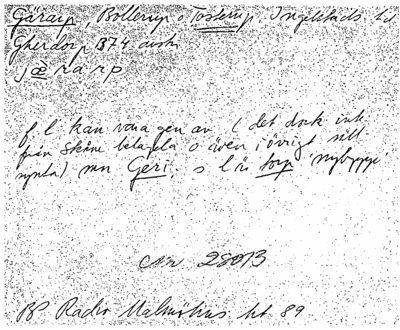 Gärarp, Bollerup o Tosterup. Ingelstads hd
Gherdorp 1374 avskr
jæ̀rarp
f l kan vara gen av (det dock ink
från Skåne belagda o även i övrigt sällsynta) mn Geri. s l är torp 'nybygge'
cnr 28013
BP Radio Malmöhus ht 89